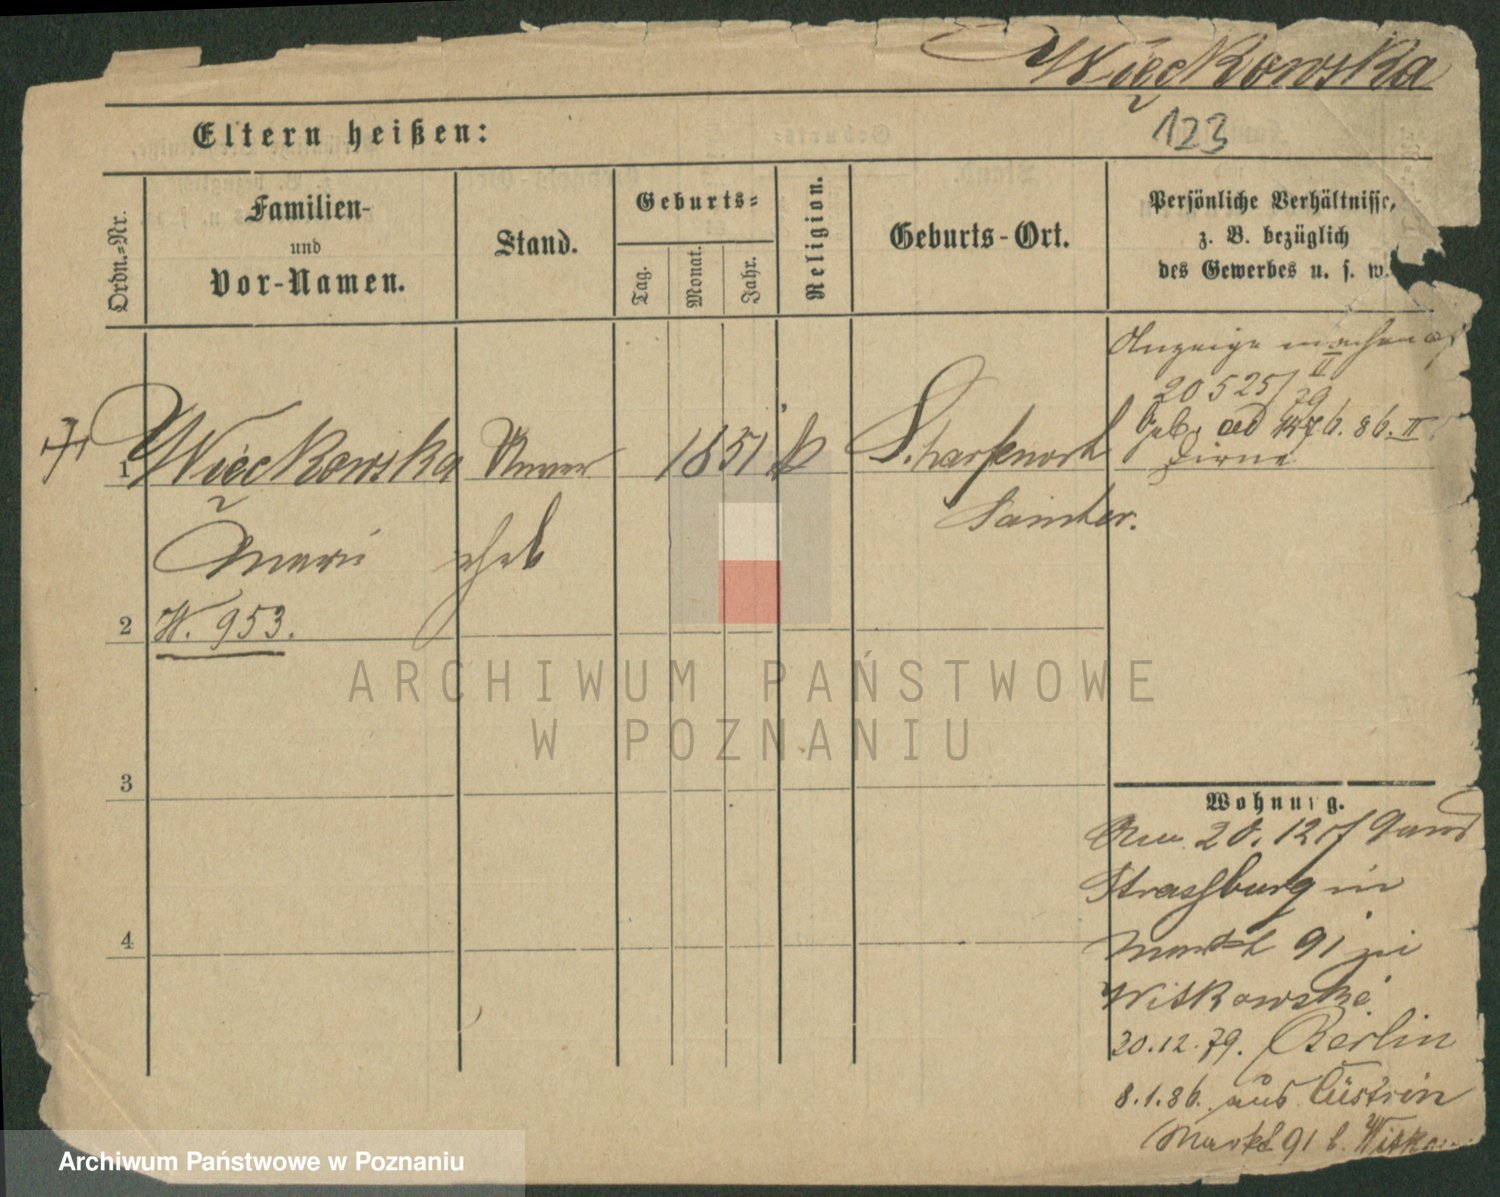 Więckowska
123
Eltern heißen:
Ordn.=Nr.
Familien-
und
Vor-Namen.
Stand.
Geburts=
Tag.
Monat.
Jahr.
Religion.
Geburts-Ort.
Persönliche Verhältnisse,
z. B. bezüglich
des Gewerbes u. s. w.
Anzeige machen
20525/79 II
ad 86. II
1 Więckowska 1851 k Scharfenort
Samter.
Marie
2 W. 953.
3
4
Wohnung.
20. 12 79 aus
Strassburg in
Markt 91 bei
Witkowski
20.12.79. Berlin
8.1.86. aus Cüstrin
Markt 91 b. Witkow
ARCHIWUM PAŃSTWOWE
W POZNANIU
Archiwum Państwowe w Poznaniu